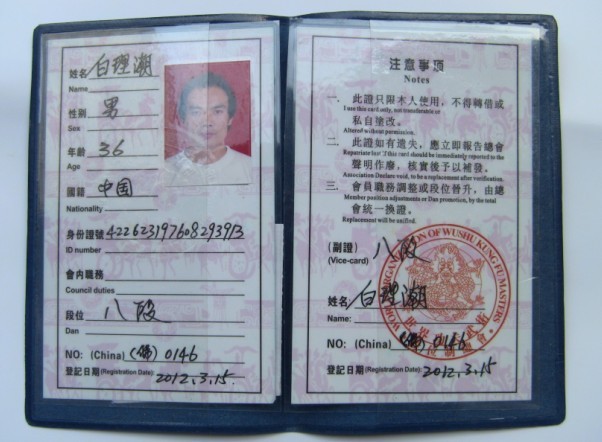 姓名 白理潮
Name
性别 男
Sex
年齡 36
Age
國籍 中国
Nationality
身份證號 422623197608293913
ID number
會内職務
Council duties
段位 八段
Dan
NO: (China) 0146
登記日期 (Registration Date): 2012.3.15.
注意事項
Notes
一、此證只限本人使用，不得轉借或
I use this card only, not transferable or
私自塗改。
Altered without permission.
二、此證如有遺失，應立即報告總會
Repatriate lost if this card should be immediately reported to the
聲明作廢，核實後予以補發。
Association Declare void, to be a replacement after verification.
三、會員職務調整或段位晉升，由總
Member position adjustments or Dan promotion, by the total
會統一換證。
Replacement will be unified.
(副證) 八段
(Vice-card)
姓名 白理潮
Name:
NO: (China) 0146
登記日期 (Registration Date): 2012.3.15
OF WUSHU KUNG FU MASTERS